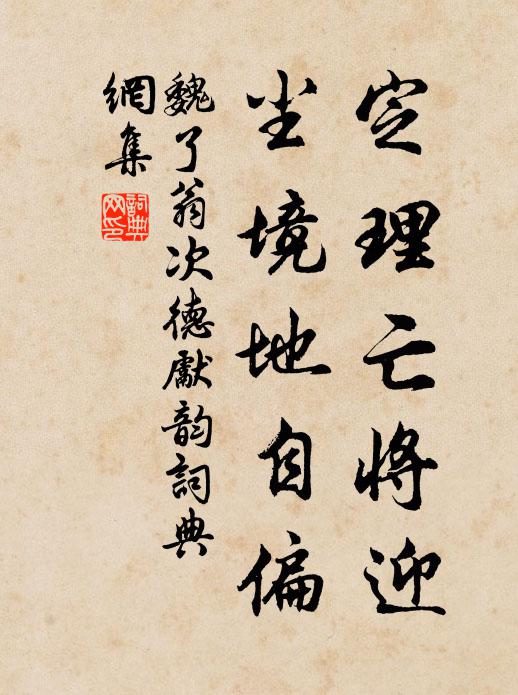 定理亡将迎
尘境地自偏
魏了翁次德獻韵詞典
網集
詞典网印